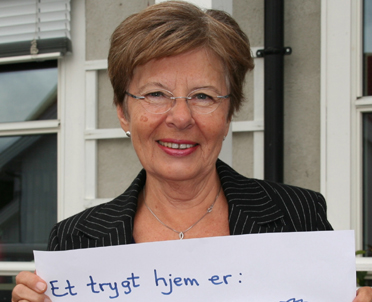 Et trygt hjem er: